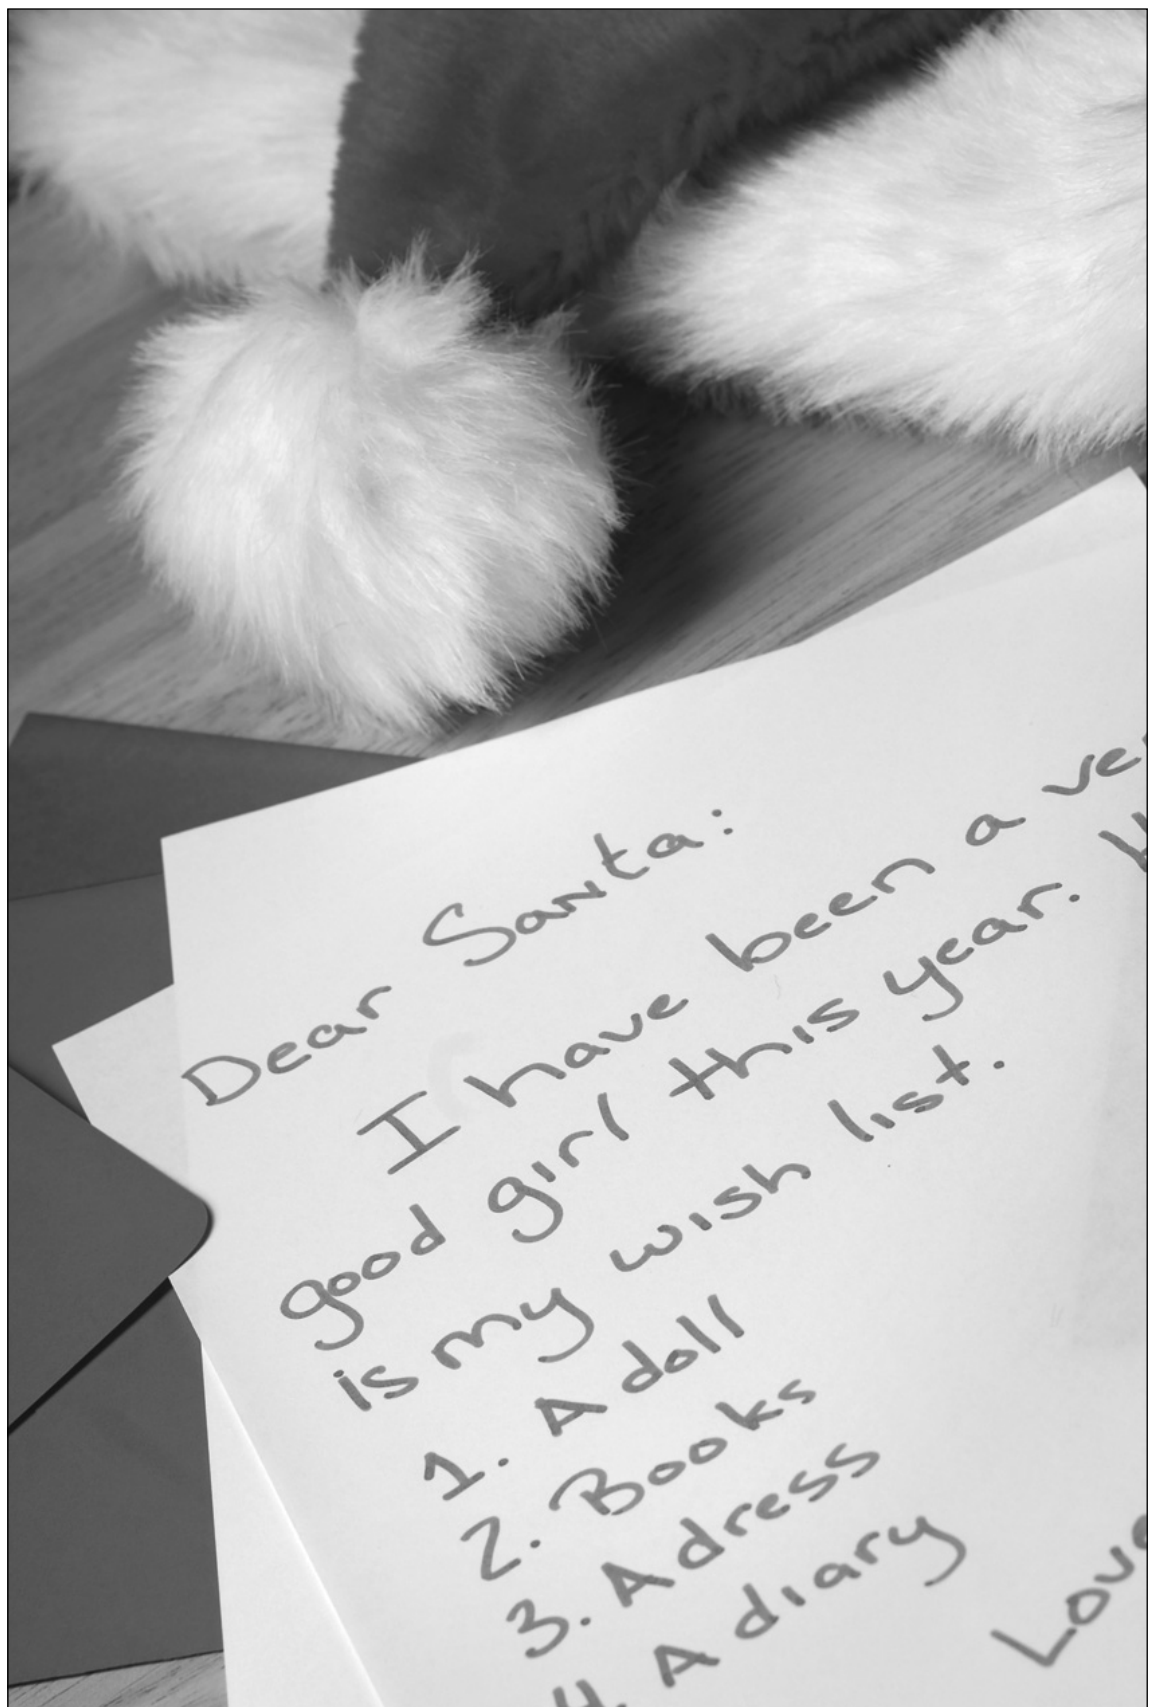 Dear Santa:
I have been a
good girl this year.
is my wish list.
1. A doll
2. Books
3. A dress
4. A diary